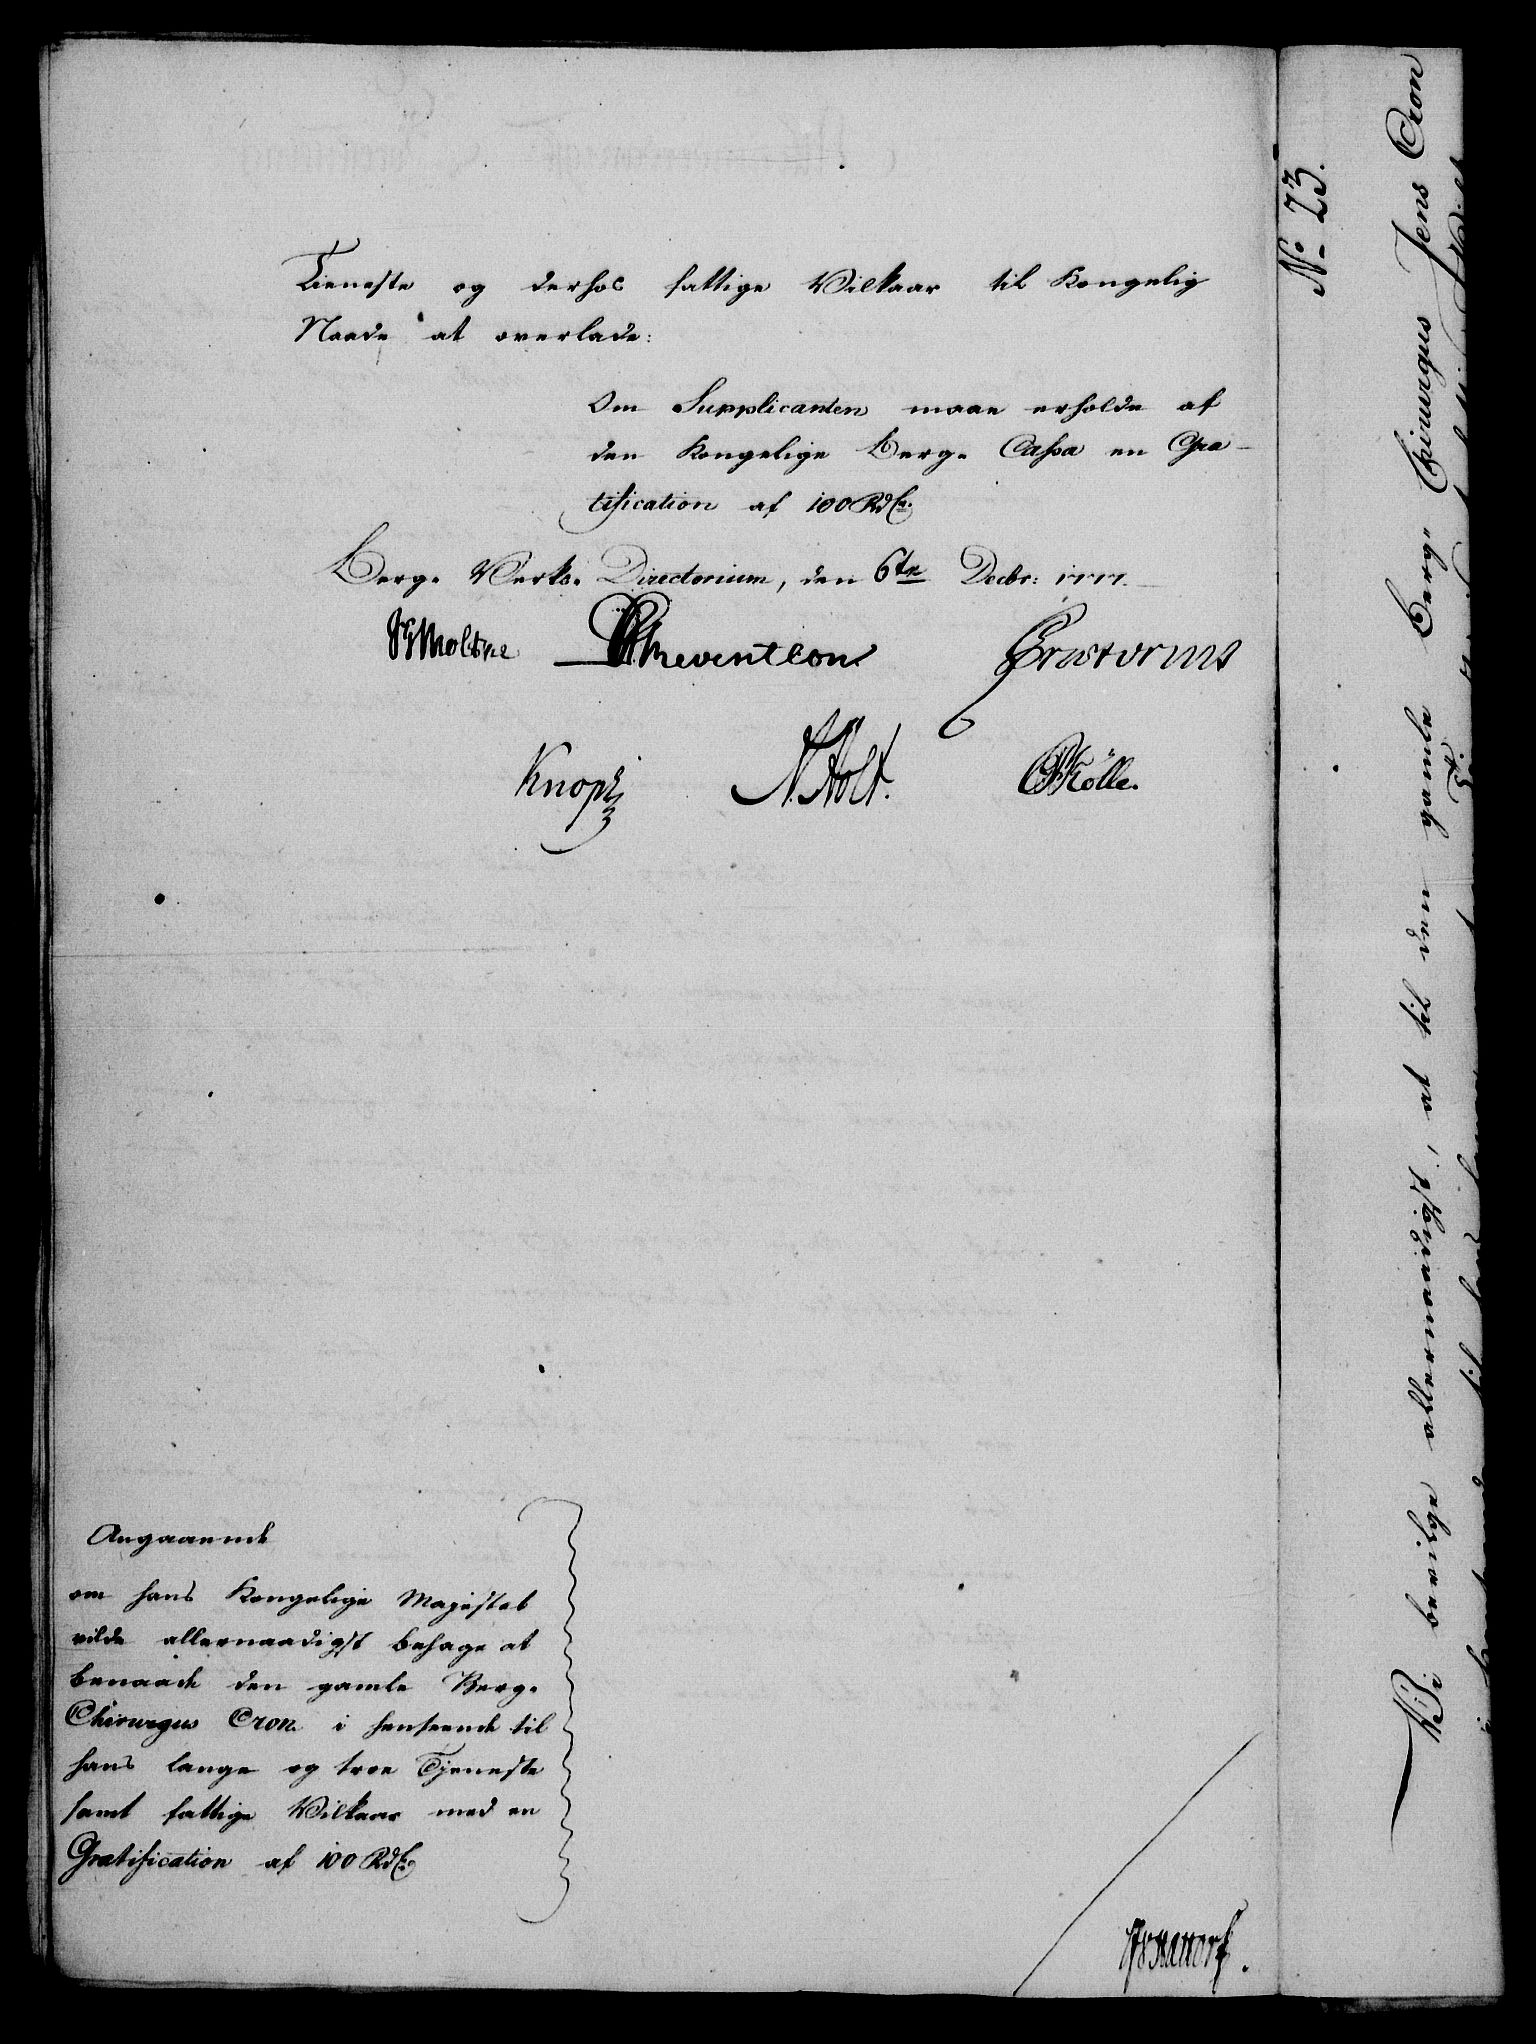 Tieneste og derhos fattige Vilkaar til Kongelig
Naade at overlade:
Om Supplicanten maae erholde af
den Kongelige Berg- Cassa en Gra-
tification af 100 Rdlr.
Berg- Verks- Directorium, den 6te Decbr: 1777.
Moltke Reventlow
Knopf N. Holt. Kölle.
Angaaende
om hans Kongelige Majestet
vilde allernaadigst behage at
benaade den gamle Berg-
Chirurgus Cron i henseende til
hans lange og troe Tjeneste
samt fattige Vilkaar med en
Gratification af 100 Rdlr.
No 23.
Vi bevilge allernaadigst, at til den gamle Berg- Chirurgus Jens Cron